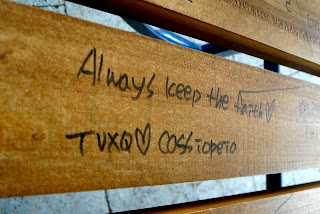 Always keep the faith♡
TVXQ♡ Cassiopeia